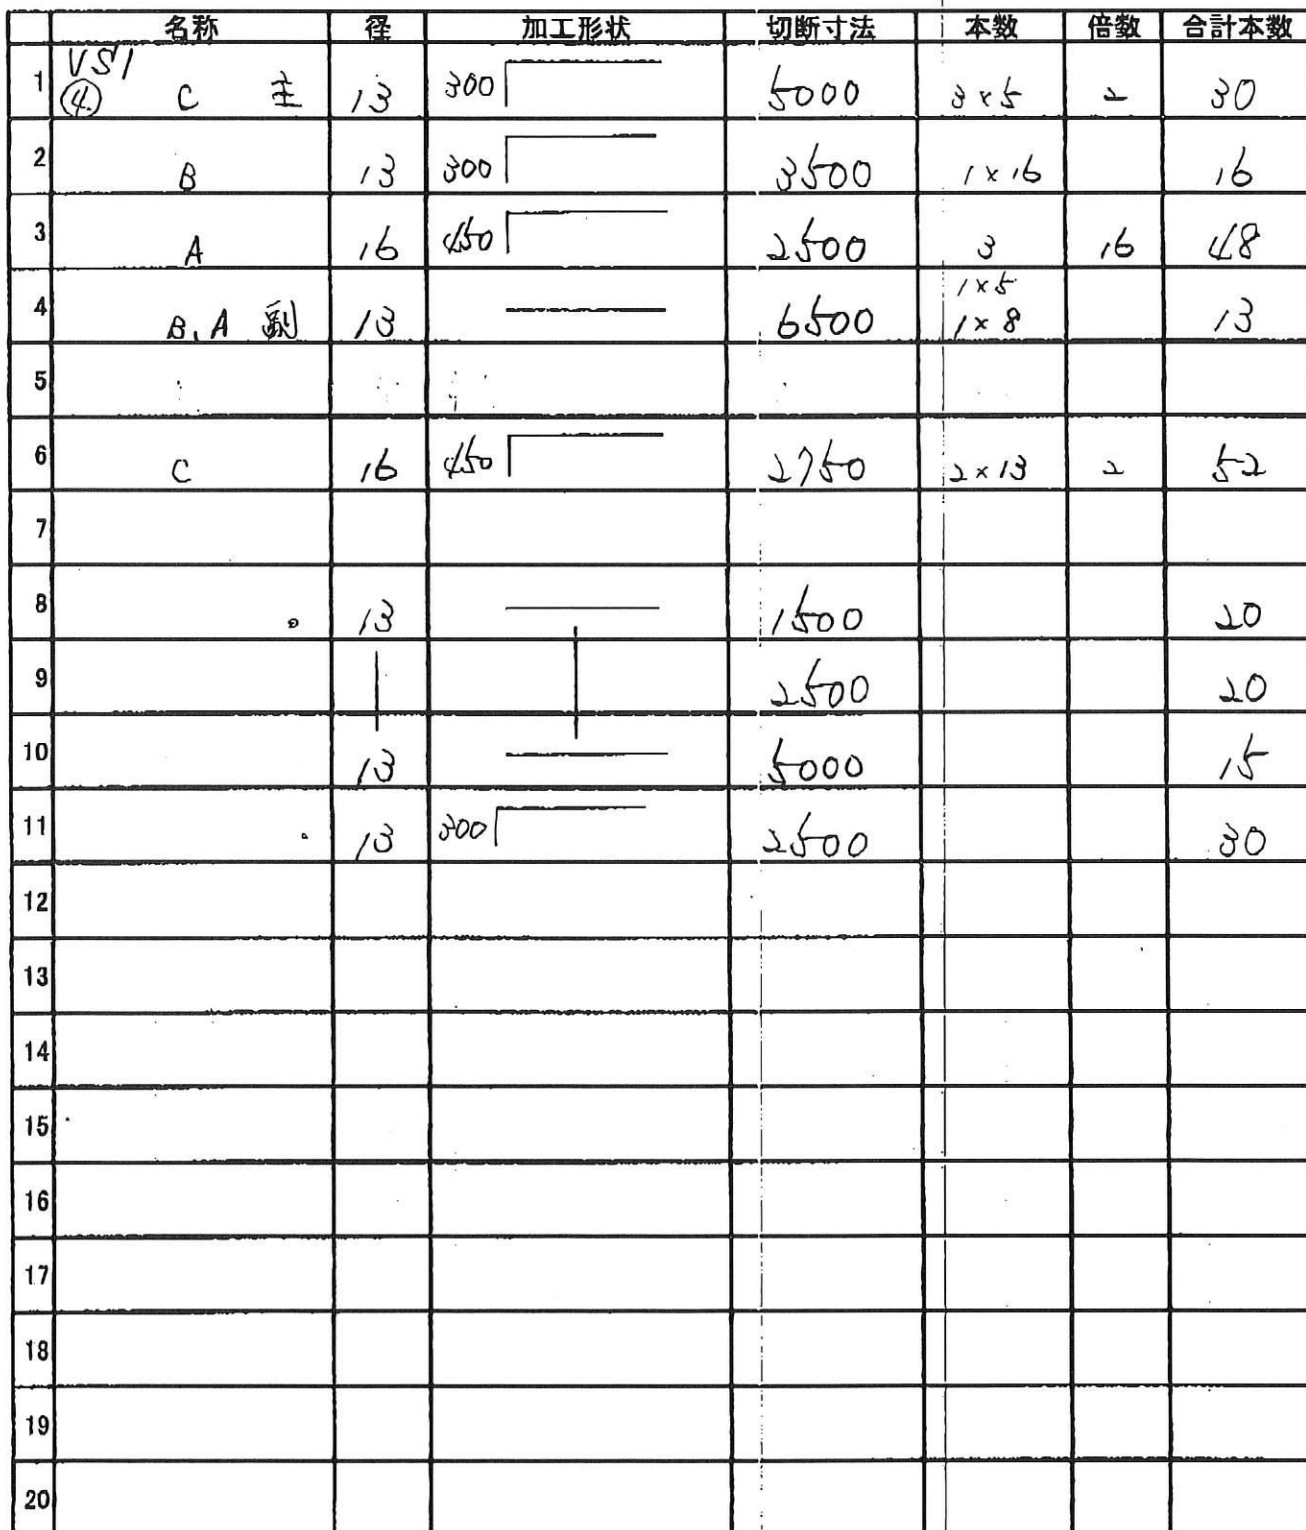 名称 径 加工形状 切断寸法 本数 倍数 合計本数
VS1
1 ④ C 主 13 300 5000 3×5 2 30
2 B 13 300 3500 1×16 16
3 A 16 450 2500 3 16 48
1×5
4 B、A 副 13 6500 1×8 13
5
6 C 16 450 2750 2×13 2 52
7
8 13 1500 20
9 2500 20
10 13 5000 15
11 13 300 2500 30
12
13
14
15
16
17
18
19
20